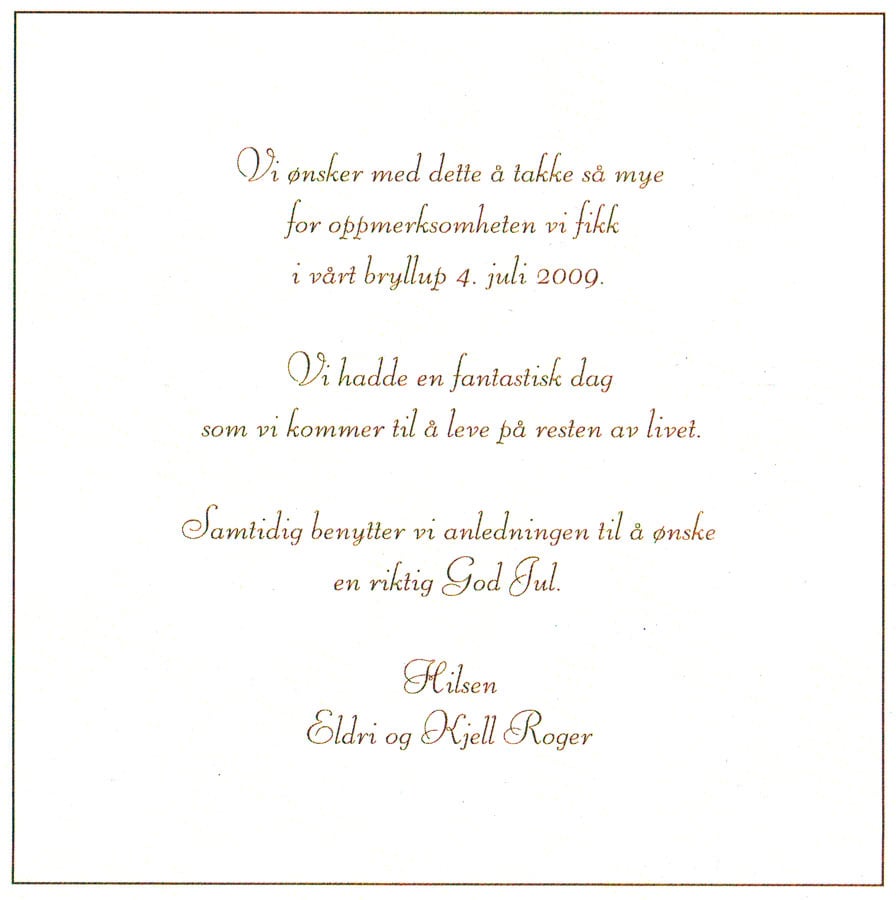 Vi ønsker med dette å takke så mye
for oppmerksomheten vi fikk
i vårt bryllup 4. juli 2009.
Vi hadde en fantastisk dag
som vi kommer til å leve på resten av livet.
Samtidig benytter vi anledningen til å ønske
en riktig God Jul.
Hilsen
Eldri og Kjell Roger